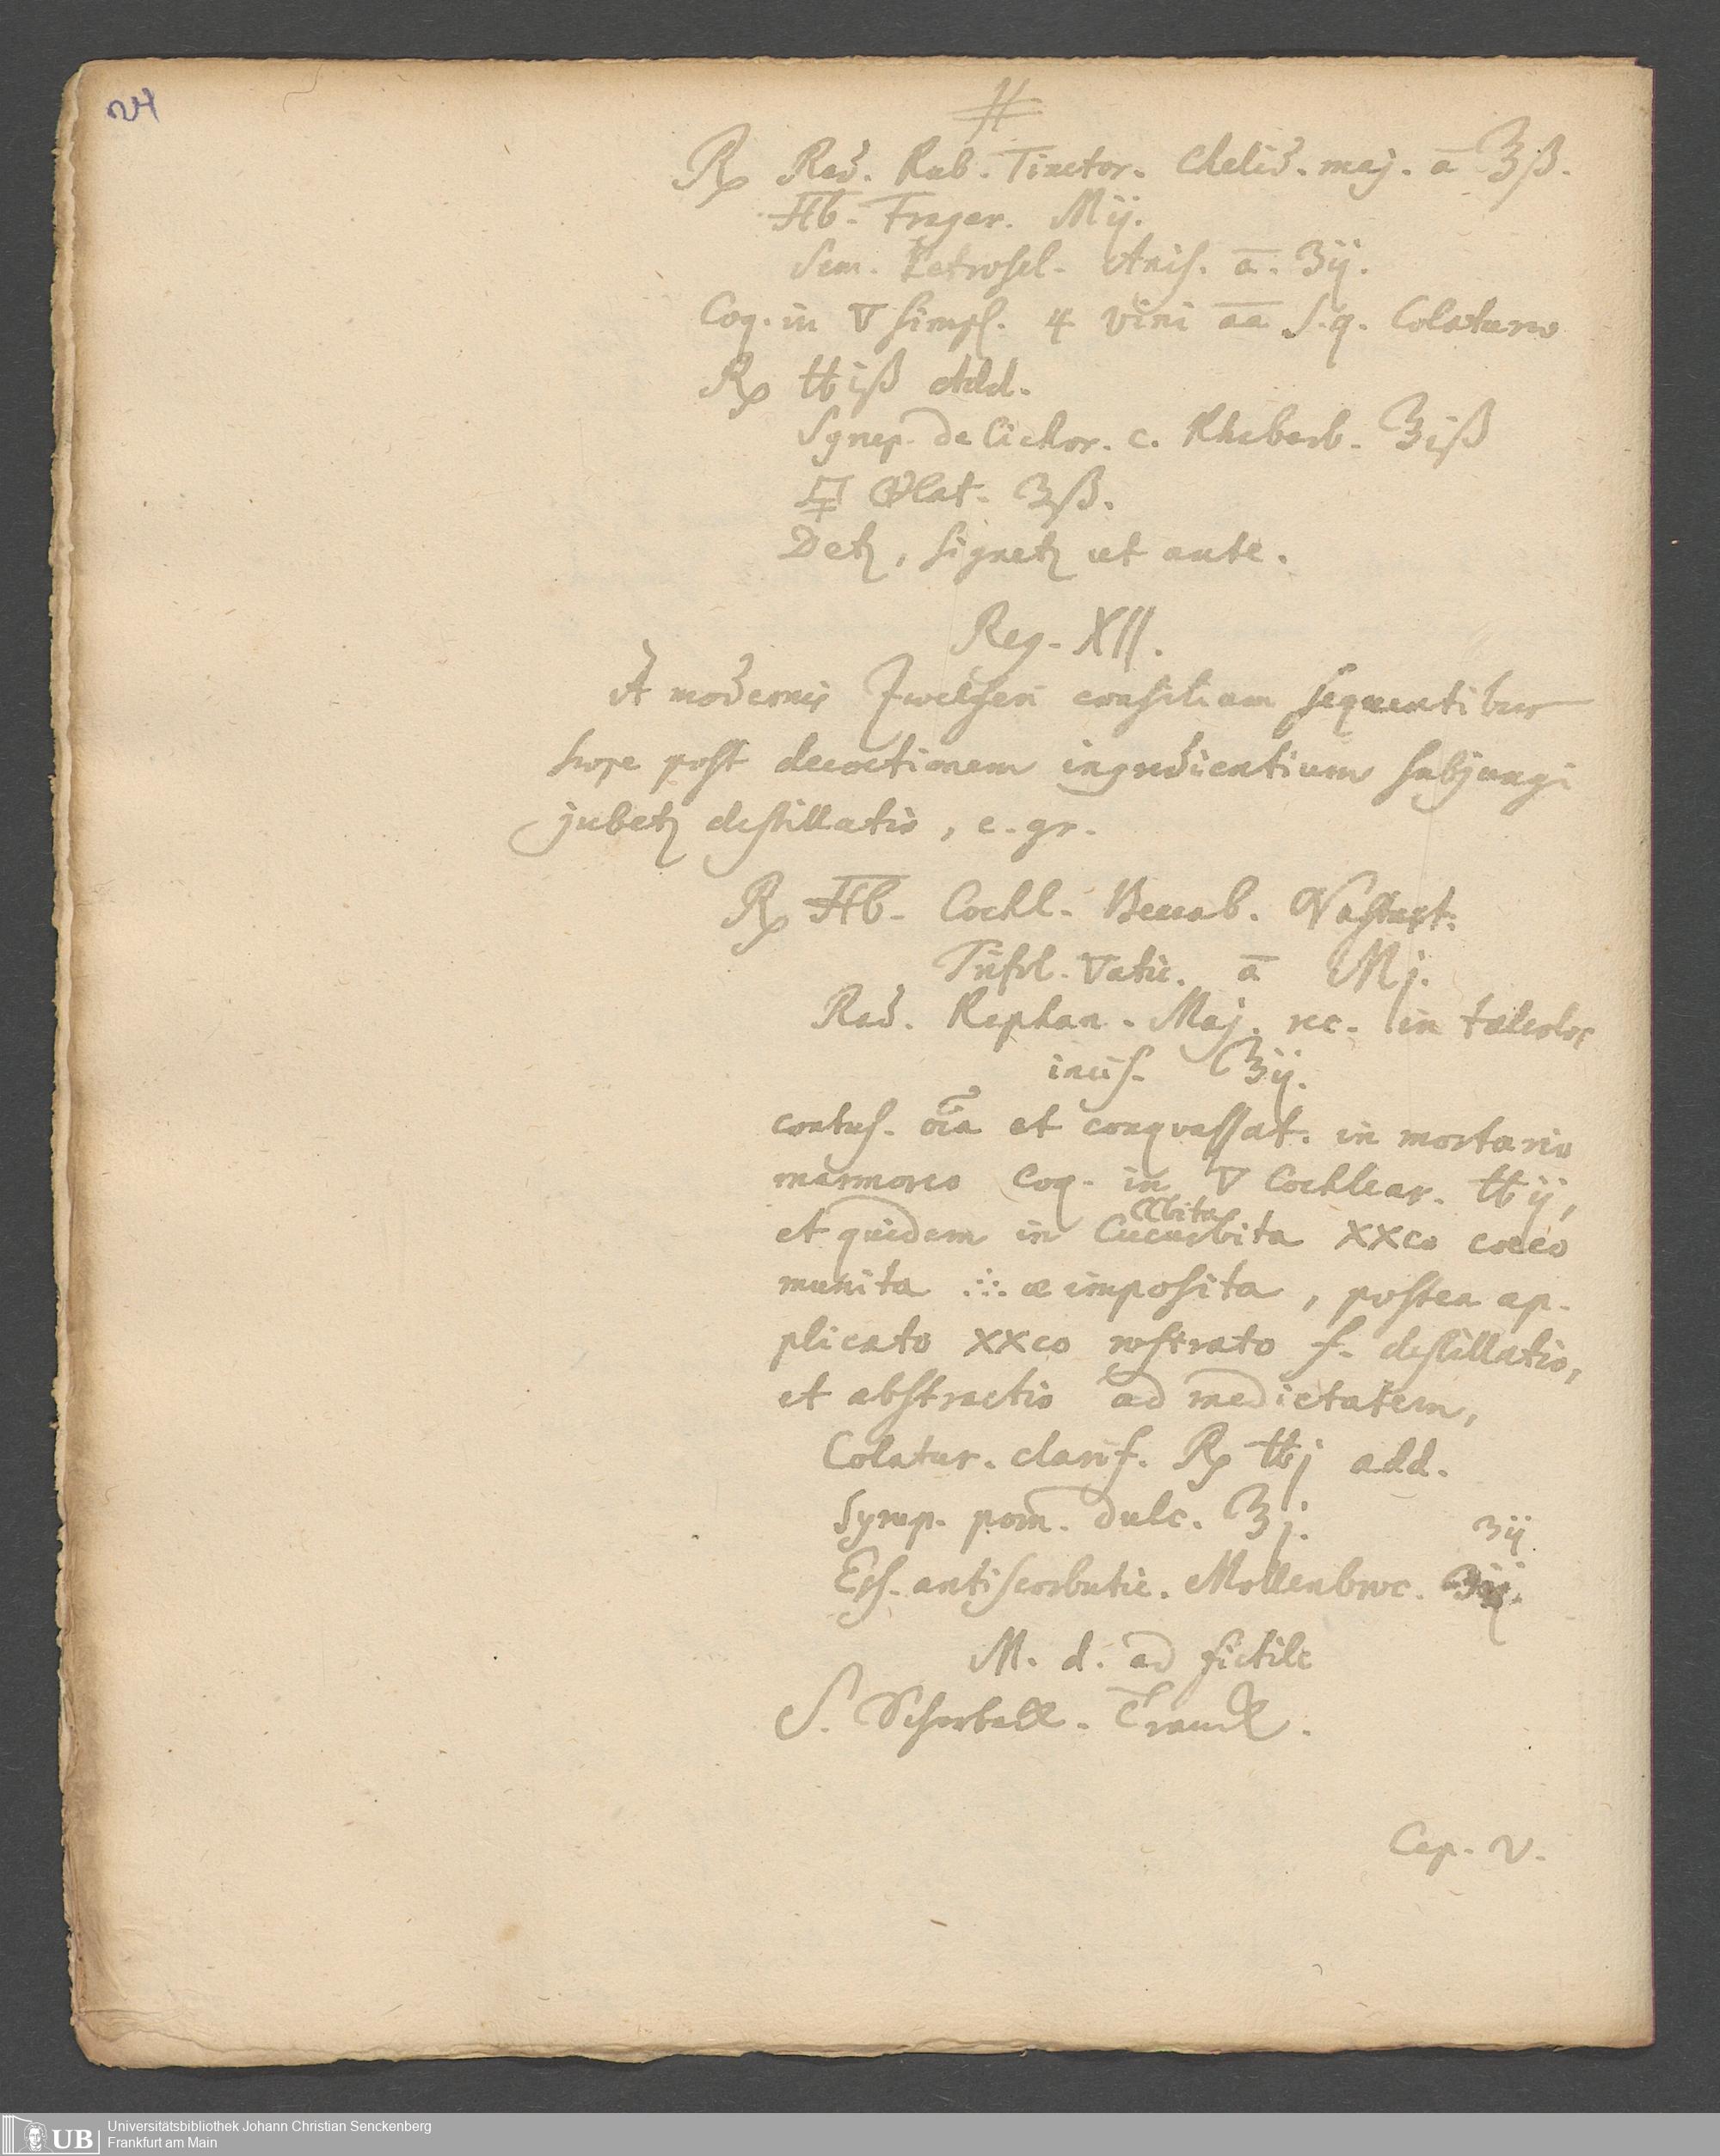 24
#
℞ Rad. Rub. Tinctor. Chelid. maj. a ℥ß.
Hb. Fragar. Mij.
Sem. Petrosel. Anis. a. ʒij.
Coq. in ▽ simpl. & vini aa s.q. Colaturae
℞ ℔iß add.
Syrup. de Cichor. c. Rhabarb. ℥iß
⊕lat. ʒß.
Detꝫ, signetꝫ ut ante.
Reg. XII.
A modernis Zwelferi consilium sequentibus
saepe post decoctionem ingredientium subjungi
jubetꝫ destillatio, e. gr.
℞ Hb. Cochl. Beccab. Nasturt.
Trifol. ▽atic. a Mj.
Rad. Raphan. Maj. rec. in taleolas
incis. ℥ij.
contus. oīa et conquassat. in mortario
marmoreo coq. in ▽ Cochlear. ℔ij,
et quidem in Cucurbita XXco coeco
bita
munita ∴ae imposita, postea ap-
plicato XXco rostrato f. destillatio,
et abstractio ad medietatem,
Colatur. clarif. ℞ ℔j add.
Syrup. pom. dulc. ℥j.
ʒij
Ess. antiscorbutic. Mollenbroc. ʒij.
M. d. ad fictile
S. Scharbock. Tranck.
Cap. V.
UB Universitätsbibliothek Johann Christian Senckenberg
Frankfurt am Main